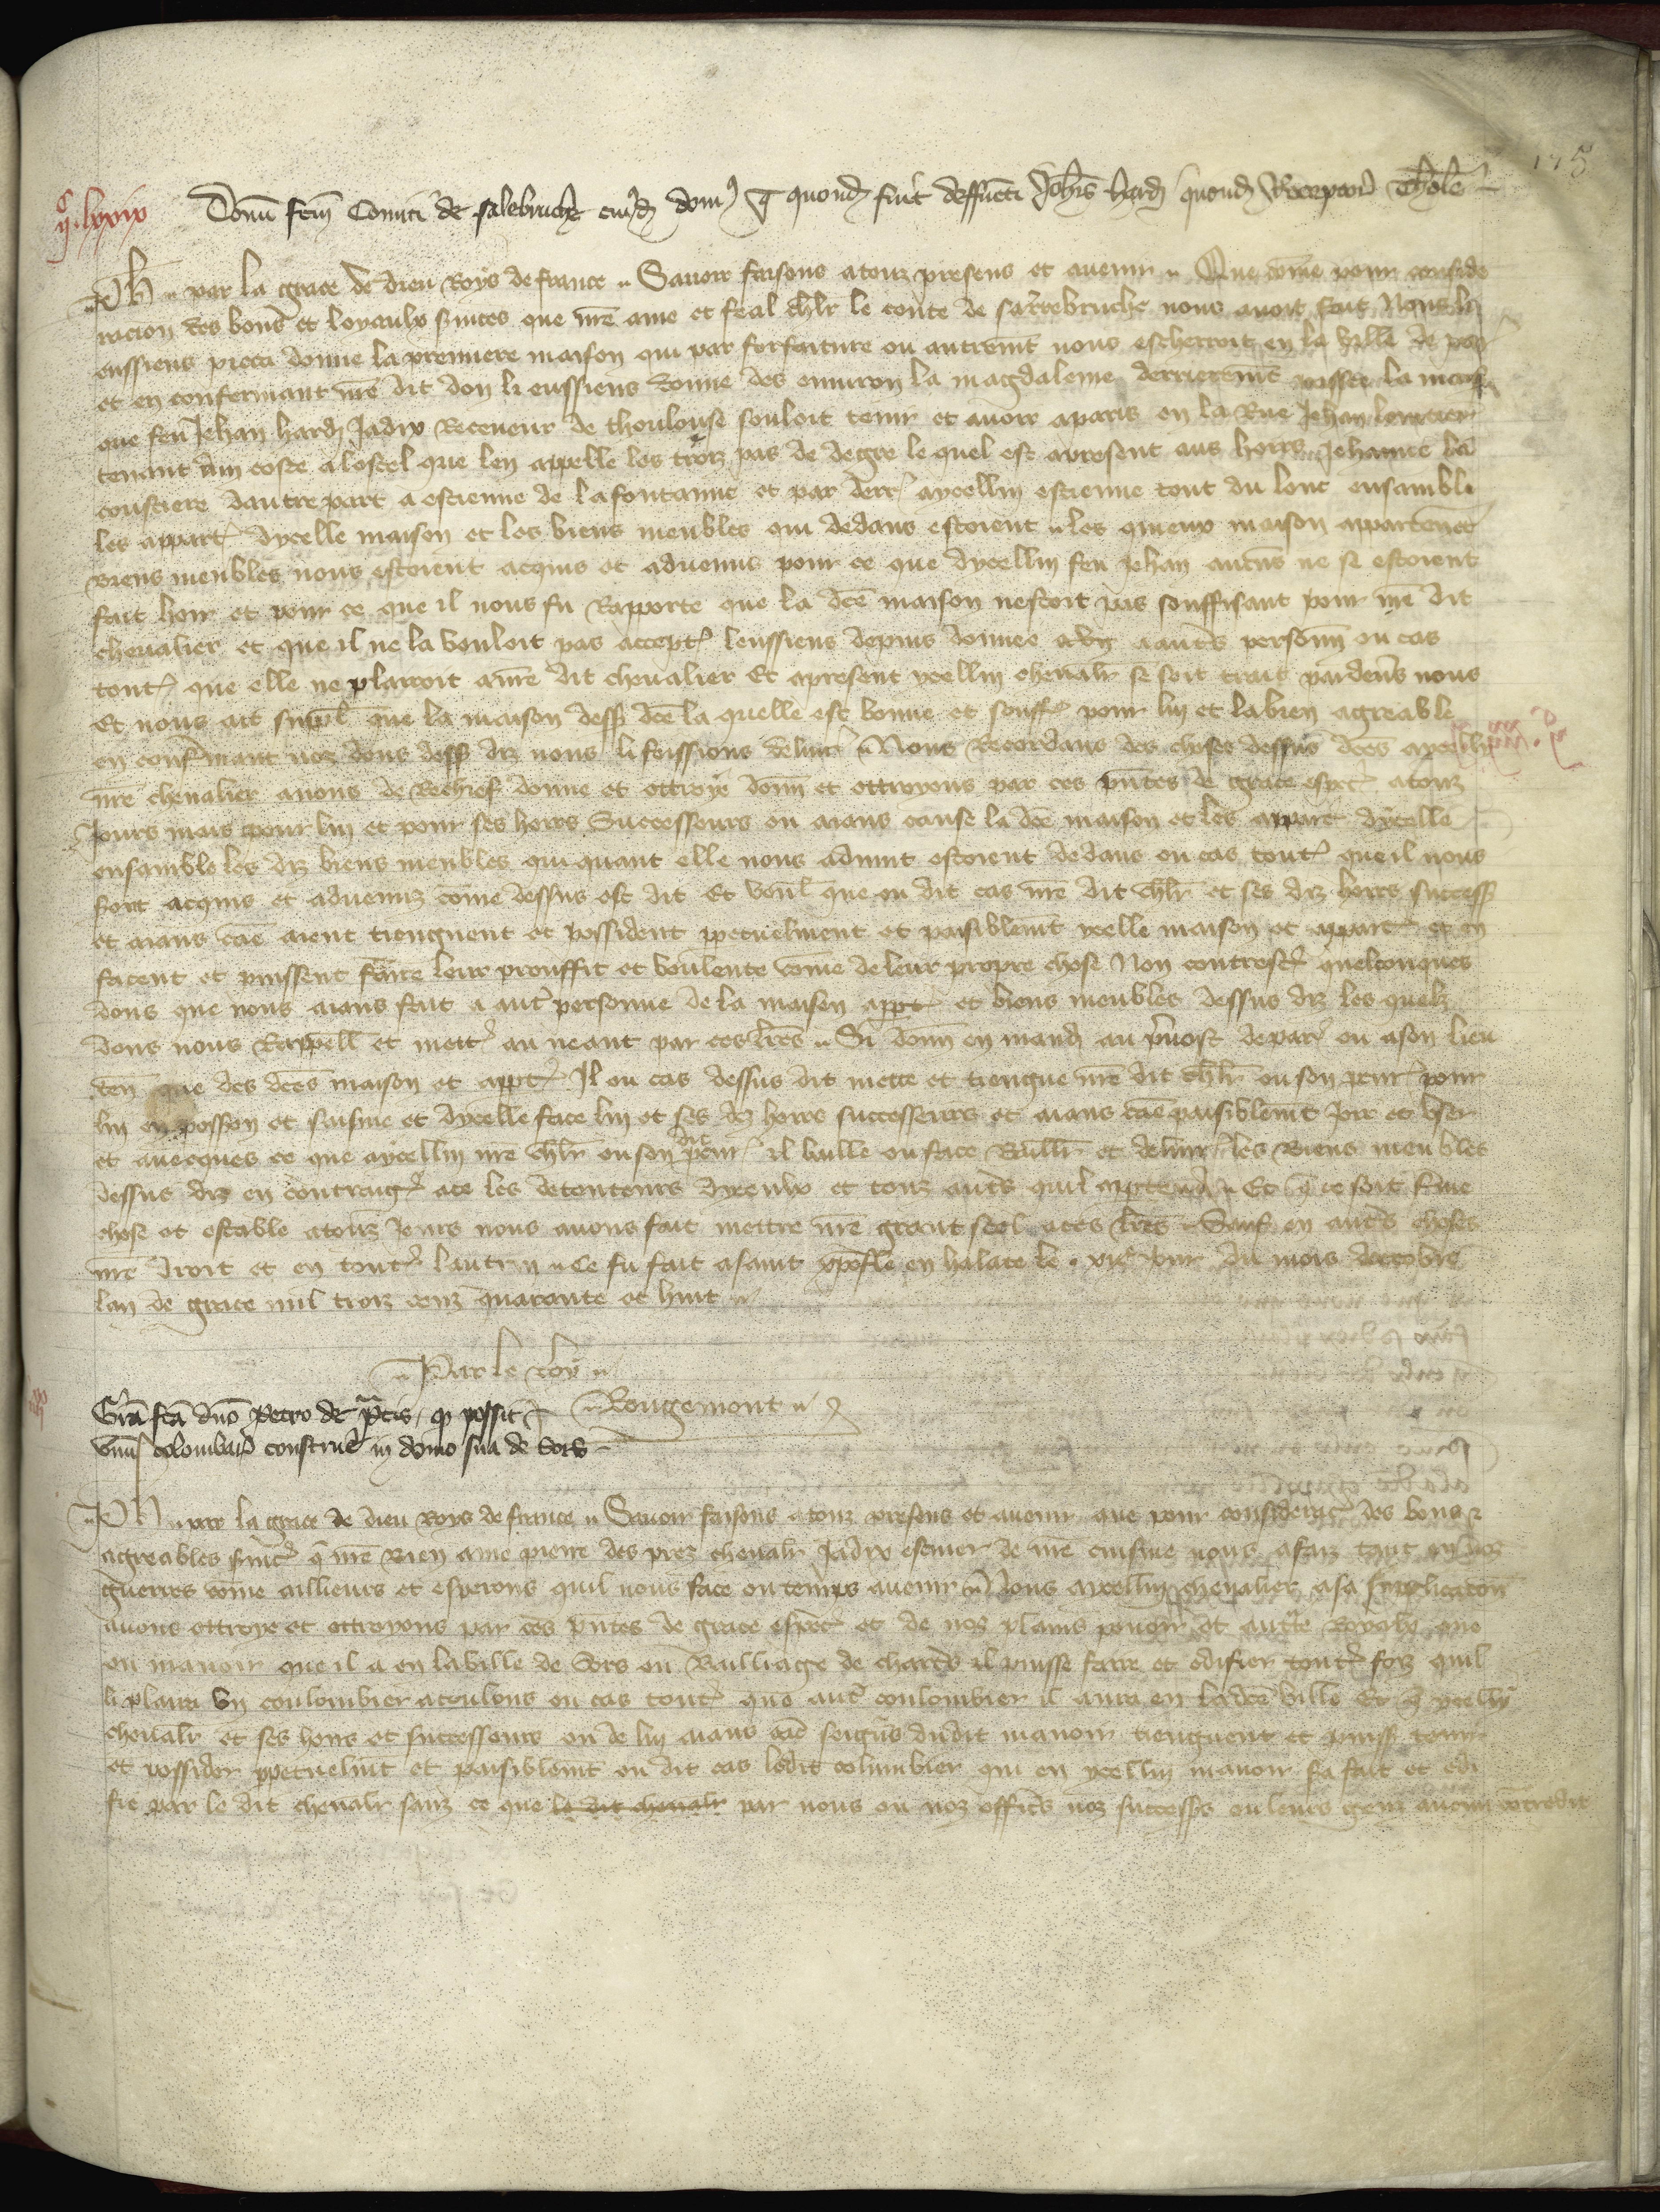 175
IIᶜ. lxxix
Donū fcm̄ Comiti de salebruche cuiusd domꝰ q̄ quond fuit deffuncti Joh̄is hard quond Receptoris Thole
Ph̄ par la grace de dieu Roys de france Savoir faisons a touz presens et avenir Que cōme pour conside
racion des bons et loyaulx s̄vices que nr̄e ame et feal ch̄lr le conte de sarrebruche nous avoit faiz Nous li
eussiens pieca donne la premiere maison qui par forfaiture ou autremt̄ nous escherroit en la ville de par
et en confermant nr̄e dit don li eussiens donne des environ la magdaleine derrieremt̄ la maison
que feu Jehan hard Jadix Receveur de thoulouse souloit tenir et avoir a paris en la Rue Jehan
tenant dun coste a lostel que len appelle les troiz pas de degre le quel est a present aus hoirs Jehanne la
coustiere dautre part a estienne de la fontainne et par derr̄ aycelluy estienne tout du lonc ensamble
les appart̄ dycelle maison et les biens meubles qui dedans estoient les quieux maison appartenēc
biens meubles nous estoient acquis et advenus pour ce que dycelluy feu Jehan aucūs ne se estoient
fait hoir et pour ce que il nous fu Rapporte que la dc̄e maison nestoit pas souffisant pour nr̄e dit
chevalier et que il ne la vouloit pas accept̄ leussiens depuis donnee a autre personn̄ ou cas
tout̄ que elle ne plairoit a nr̄e dit chevalier Et a present ycelluy chevalr se soit trait pardevs nous
Et nous ait suppl̄ que la maison dess dc̄e la quelle est bonne et souff̄ pour luy et la bien agreable
en conf̄mant noz dons dess diz nous li feissions delivr̄ Nous Recordans des choses dessus dc̄es aycelluy
nr̄e chevalier avons de Rechief donne et ottroye donn̄ et ottroyons par ces p̄ntes de grace especˡ a touz
Jours mais pour luy et pour ses hoirs Successeurs ou aians cause la dc̄e maison et les appart̄ dycelle
ensamble les diz biens meubles qui quant elle nous advint estoient dedans ou cas tout̄ que il nous
sont acquis et advenuz cōme dessus est dit Et voul̄ que ou dit cas nr̄e dit ch̄lr et ses diz hoirs success
et aians cāe aient tiengnent et possident p̄petuelment et paisiblemt̄ ycelle maison et appart̄ et en
facent et puissent faire leur prouffit et voulente cōme de leur propre chose Non contrest̄ quelconques
dons que nous aians fait a aut̄ personne de la maison appt̄ et biens meubles dessus diz les quelz
dons nous Rappell̄ et mett̄ au neant par ces lr̄es Si donn̄ en mand au p̄vost de par̄ ou a son lieu
ten̄ que des dc̄es maison et appt̄ Il ou cas dessus dit mette et tiengne nr̄e dit ch̄lr ou son pcur̄ pour
luy en posson et saisine et dycelle face luy et ses diz hoirs successeurs et aians cāe paisiblemt̄ Joir et user
et avecques ce que aycelluy nr̄e ch̄lr ou son dit pcur̄ il baille ou face baill̄r et delivr̄ les biens meubles
dessus diz en contraiḡ a ce les detenteurs dyceulx et touz aut̄s quil apptendra Et q̄ ce soit ferme
chose et estable a touz Jours nous avons fait mettre nr̄e grant seel a ces lr̄es Sauf en aut̄s choses
nr̄e droit et en tout̄ lautruy Ce fu fait a saint xpōfle en halate le . Jour du mois doctobre
lan de grace mil troiz cenz quarante et huit
Par le Roy
Rougemont
Grā fcā dn̄o Petro de p̄tis, q̄ possit
unū colombar̄ construe in domo sua de Sors
Ph̄ par la grace de dieu Roys de france Savoir faisons a touz presens et avenir que pour consideracō des bons
agreables s̄vic̄ q̄ nr̄e bien ame pierre des prez chevalr Jadix escuier de nr̄e cuisine nous a faiz tant en noz
guerres cōme aillieurs et esperons quil nous face ou temps avenir Nous aycelluy chevalier a sa supplicacōn
avons ottroye et ottroyons par ces p̄ntes de grace especˡ et de noz plains povoir et auctᵗe Royalx que
ou manoir que il a en la ville de Sors ou Bailliage de chartˢ il puisse faire et edifier tout̄ foiz quil
li plaira un coulombier a coulons ou cas tout̄ que aut̄ coulombier il aura en la dc̄e ville Et q̄ ycelluy
chevalr et ses hoirs et successeurs ou de luy aians cāe seigūs dudit manoir tiengnent et puiss tenir
et possider p̄petuelmt̄ et paisiblemt̄ ou dit cas ledit colunbier qui en ycelluy manoir sa fait et edi
fie par le dit chevalr sanz ce que le dit chevalr par nous ou noz officˢ noz successˢ ou leurs genz aucun contredit